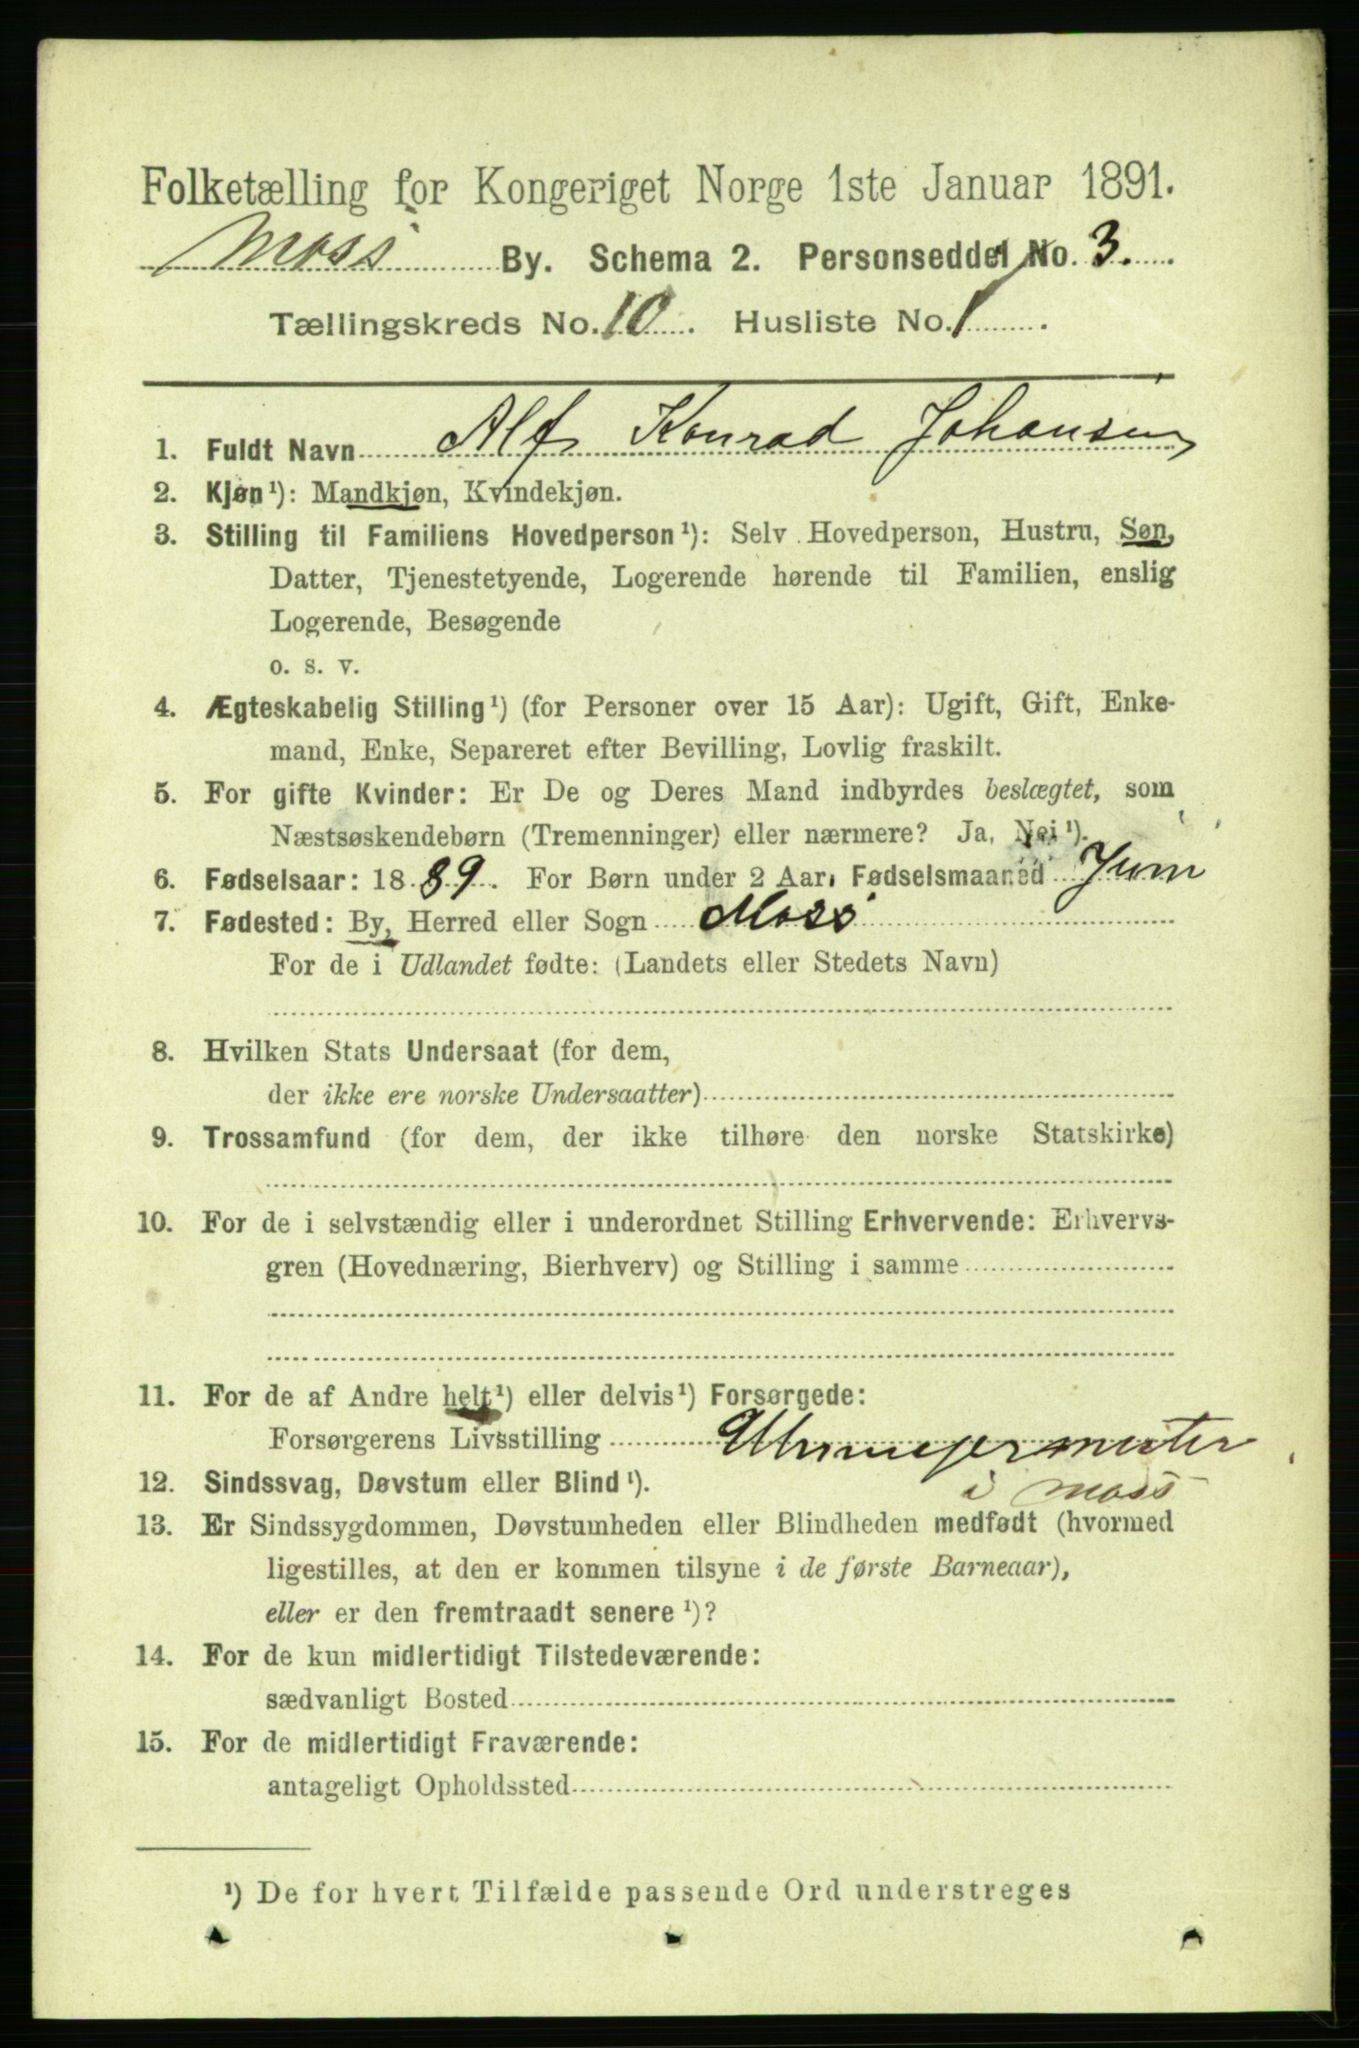 Folketælling for Kongeriget Norge 1ste Januar 1891.
Moss By. Schema 2. Personseddel No. 3.
Tællingskreds No. 10. Husliste No. 1.
1. Fuldt Navn Alf Konrad Johansen
2. Kjøn¹): Mandkjøn, Kvindekjøn.
3. Stilling til Familiens Hovedperson¹): Selv Hovedperson, Hustru, Søn,
Datter, Tjenestetyende, Logerende hørende til Familien, enslig
Logerende, Besøgende
o. s. v.
4. Ægteskabelig Stilling¹) (for Personer over 15 Aar): Ugift, Gift, Enke-
mand, Enke, Separeret efter Bevilling, Lovlig fraskilt.
5. For gifte Kvinder: Er De og Deres Mand indbyrdes beslægtet, som
Næstsøskendebørn (Tremenninger) eller nærmere? Ja, Nei¹).
6. Fødselsaar: 1889. For Børn under 2 Aar, Fødselsmaaned Juni
7. Fødested: By, Herred eller Sogn Moss
For de i Udlandet fødte: (Landets eller Stedets Navn)
8. Hvilken Stats Undersaat (for dem,
der ikke ere norske Undersaatter)
9. Trossamfund (for dem, der ikke tilhøre den norske Statskirke)
10. For de i selvstændig eller i underordnet Stilling Erhvervende: Erhvervs-
gren (Hovednæring, Bierhverv) og Stilling i samme
11. For de af Andre helt¹) eller delvis¹) Forsørgede:
Forsørgerens Livsstilling
i Moss
12. Sindssvag, Døvstum eller Blind¹).
13. Er Sindssygdommen, Døvstumheden eller Blindheden medfødt (hvormed
ligestilles, at den er kommen tilsyne i de første Barneaar),
eller er den fremtraadt senere¹)?
14. For de kun midlertidigt Tilstedeværende:
sædvanligt Bosted
15. For de midlertidigt Fraværende:
antageligt Opholdssted
¹) De for hvert Tilfælde passende Ord understreges